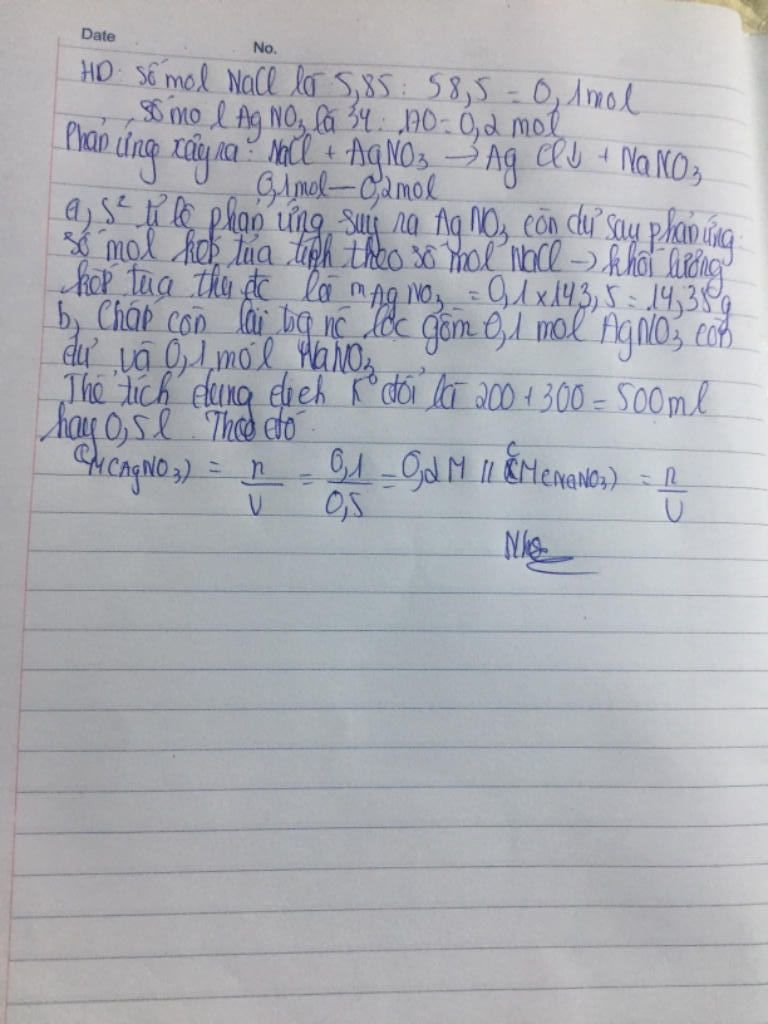 Date
No.
HD: Số mol NaCl là 5,85 : 58,5 = 0,1mol
Số mol AgNO3 là 34 : 170 = 0,2 mol
Phản ứng xảy ra: NaCl + AgNO3 → AgCl↓ + NaNO3
0,1mol — 0,2mol
a, S² tỉ lệ phản ứng suy ra AgNO3 còn dư sau phản ứng.
Số mol kết tủa tính theo số mol NaCl → khối lượng
kết tủa thu đc là mAgNO3 = 0,1 x 143,5 = 14,35g
b, Chất còn lại trg nc lọc gồm 0,1 mol AgNO3 còn
dư và 0,1 mol NaNO3
Thể tích dung dịch K° đổi là 200 + 300 = 500ml
hay 0,5l. Theo đó
CM(AgNO3) = n/V = 0,1/0,5 = 0,2M // CM(NaNO3) = n/V